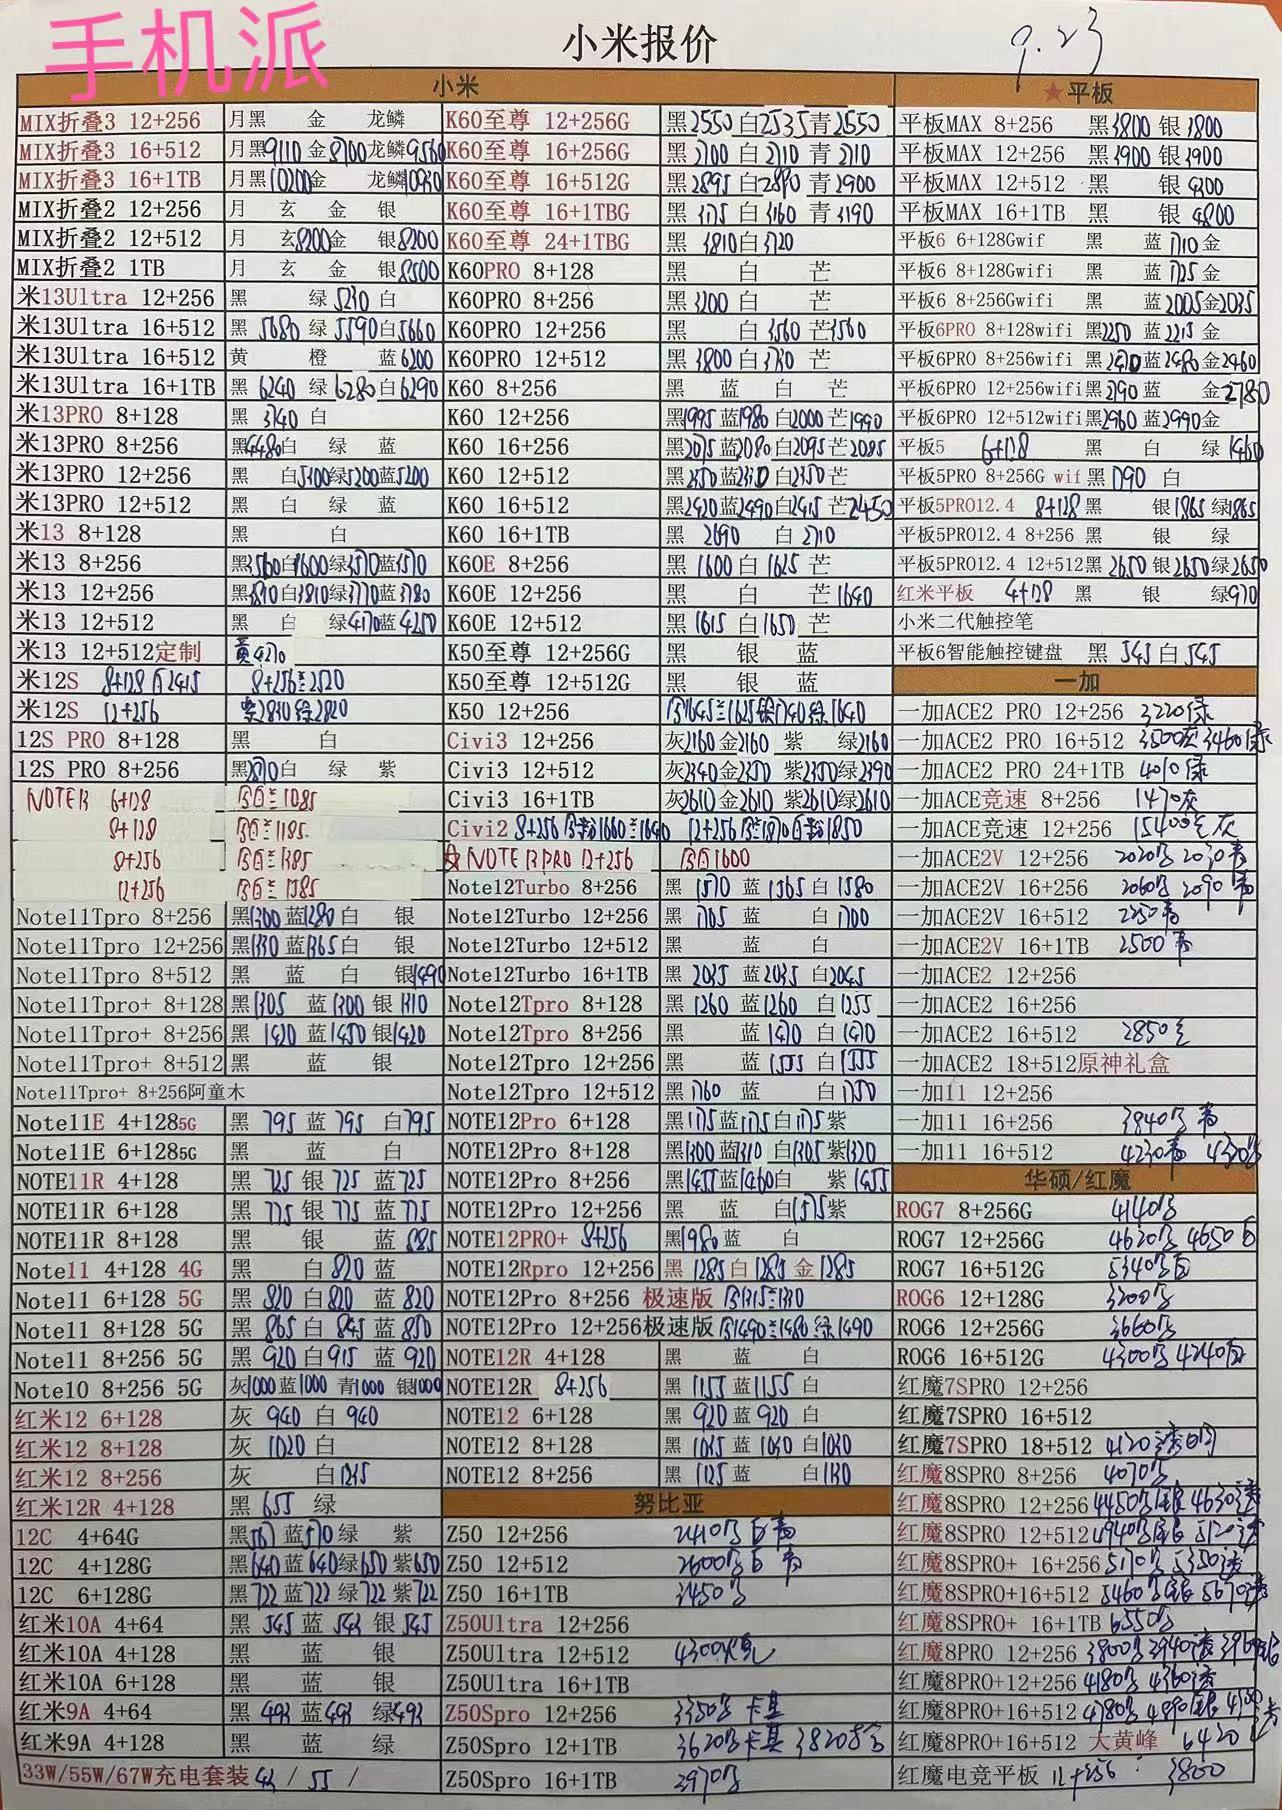 手机派
小米报价
9.23
小米
MIX折叠3 12+256 月黑 金 龙鳞
MIX折叠3 16+512 月黑9110 金8700 龙鳞9560
MIX折叠3 16+1TB 月黑10200 金 龙鳞
MIX折叠2 12+256 月 玄 金 银
MIX折叠2 12+512 月 玄8200 金 银8200
MIX折叠2 1TB 月 玄 金 银8500
米13Ultra 12+256 黑 绿 白
米13Ultra 16+512 黑5680 绿5590 白5660
米13Ultra 16+512 黄 橙 蓝6200
米13Ultra 16+1TB 黑6240 绿6280 白6290
米13PRO 8+128 黑3740 白
米13PRO 8+256 黑4480 白 绿 蓝
米13PRO 12+256 黑 白 绿5200 蓝5200
米13PRO 12+512 黑 白 绿 蓝
米13 8+128 黑 白
米13 8+256 黑3560 白3600 绿3570 蓝3570
米13 12+256 黑 白3810 绿3770 蓝3780
米13 12+512 黑 白 绿4170 蓝4250
米13 12+512定制 黄
米12S 8+128 白2415 8+256 2520
米12S 12+256
12S PRO 8+128 黑 白
12S PRO 8+256 黑 白 绿 紫
NOTE13 6+128 1085
8+128 1185
8+256 1385
12+256
Note11Tpro 8+256 黑1300 蓝1280 白 银
Note11Tpro 12+256 黑 蓝1365 白 银
Note11Tpro 8+512 黑 蓝 白 银1490
Note11Tpro+ 8+128 黑1305 蓝1300 银1310
Note11Tpro+ 8+256 黑1420 蓝1450 银1420
Note11Tpro+ 8+512 黑 蓝 银
Note11Tpro+ 8+256阿童木
Note11E 4+1285G 黑 795 蓝 795 白795
Note11E 6+1285G 黑 蓝 白
NOTE11R 4+128 黑 725 银 725 蓝725
NOTE11R 6+128 黑 775 银 775 蓝775
NOTE11R 8+128 黑 银 蓝
Note11 4+128 4G 黑 白820 蓝
Note11 6+128 5G 黑 820 白820 蓝 820
Note11 8+128 5G 黑 865 白 845 蓝 850
Note11 8+256 5G 黑 920 白915 蓝 920
Note10 8+256 5G 灰1000 蓝1000 青1000 银1000
红米12 6+128 灰 940 白 940
红米12 8+128 灰 1020 白
红米12 8+256 灰 白
红米12R 4+128 黑 655 绿
12C 4+64G 黑567 蓝570 绿 紫
12C 4+128G 黑640 蓝640 绿650 紫650
12C 6+128G 黑722 蓝722 绿722 紫722
红米10A 4+64 黑 545 蓝 银 545
红米10A 4+128 黑 蓝 银
红米10A 6+128 黑 蓝 银
红米9A 4+64 黑 493 蓝493 绿493
红米9A 4+128 黑 蓝 绿
33W/55W/67W充电套装 / 55 /
K60至尊 12+256G 黑2550 白2535 青2550
K60至尊 16+256G 黑2700 白2710 青2710
K60至尊 16+512G 黑2895 白2890 青2900
K60至尊 16+1TBG 黑3175 白3160 青3190
K60至尊 24+1TBG 黑 白
K60PRO 8+128 黑 白 芒
K60PRO 8+256 黑 白 芒
K60PRO 12+256 黑 白 芒
K60PRO 12+512 黑3800 白 芒
K60 8+256 黑 蓝 白 芒
K60 12+256 黑1995 蓝1980 白2000 芒1990
K60 16+256 黑2075 蓝2080 白2095 芒2085
K60 12+512 黑 蓝 白 芒
K60 16+512 黑2420 蓝 白2415 芒2450
K60 16+1TB 黑2690 白2710
K60E 8+256 黑1600 白 1625 芒
K60E 12+256 黑 白 芒1640
K60E 12+512 黑1615 白1650 芒
K50至尊 12+256G 黑 银 蓝
K50至尊 12+512G 黑 银 蓝
K50 12+256
Civi3 12+256 灰2160 金2160 紫 绿2160
Civi3 12+512 灰2340 金2350 紫2350 绿2390
Civi3 16+1TB 灰2610 金2610 紫2610 绿2610
Civi2 8+256 1660 1640 12+256 1850
NOTE 13 PRO 12+256 1600
Note12Turbo 8+256 黑1570 蓝1565 白1580
Note12Turbo 12+256 黑1705 蓝 白1700
Note12Turbo 12+512 黑 蓝 白
Note12Turbo 16+1TB 黑2035 蓝2035 白2045
Note12Tpro 8+128 黑1260 蓝1260 白1255
Note12Tpro 8+256 黑 蓝1470 白1470
Note12Tpro 12+256 黑 蓝1555 白1555
Note12Tpro 12+512 黑1760 蓝 白1750
NOTE12Pro 6+128 黑1175 蓝1175 白1175 紫
NOTE12Pro 8+128 黑1300 蓝1310 白1305 紫1320
NOTE12Pro 8+256 黑1455 蓝1460 白 紫1455
NOTE12Pro 12+256 黑 蓝 白1575 紫
NOTE12PRO+ 8+256 黑1980 蓝 白
NOTE12Rpro 12+256 黑1285 白1285 金1285
NOTE12Pro 8+256 极速版
NOTE12Pro 12+256极速版 1490 1480 绿1490
NOTE12R 4+128 黑 蓝 白
NOTE12R 8+256 黑1155 蓝1155 白
NOTE12 6+128 黑 920 蓝920 白
NOTE12 8+128 黑1035 蓝1030 白1030
NOTE12 8+256 黑1125 蓝 白1130
努比亚
Z50 12+256 2410
Z50 12+512 2600
Z50 16+1TB
Z50Ultra 12+256
Z50Ultra 12+512 4300
Z50Ultra 16+1TB
Z50Spro 12+256 3350
Z50Spro 12+1TB 3620 3820
Z50Spro 16+1TB
★平板
平板MAX 8+256 黑3800 银3800
平板MAX 12+256 黑3900 银3900
平板MAX 12+512 黑 银4300
平板MAX 16+1TB 黑 银4800
平板6 6+128Gwif 黑 蓝1710 金
平板6 8+128Gwifi 黑 蓝1725 金
平板6 8+256Gwifi 黑 蓝2005 金2035
平板6PRO 8+128wifi 黑2250 蓝2215 金
平板6PRO 8+256wifi 黑 蓝2480 金2460
平板6PRO 12+256wifi 黑2790 蓝 金2780
平板6PRO 12+512wifi 黑2960 蓝2990 金
平板5 6+128 黑 白 绿1460
平板5PRO 8+256G wif 黑1790 白
平板5PRO12.4 8+128 银1865 绿1865
平板5PRO12.4 8+256 黑 银 绿
平板5PRO12.4 12+512 黑2650 银2650 绿2650
红米平板 4+128 黑 银 绿970
小米二代触控笔
平板6智能触控键盘 黑 545 白545
一加
一加ACE2 PRO 12+256 3220绿
一加ACE2 PRO 16+512 3500灰 3460绿
一加ACE2 PRO 24+1TB 4010绿
一加ACE竞速 8+256 1470灰
一加ACE竞速 12+256 1540
一加ACE2V 12+256 2020
一加ACE2V 16+256 2060 2090
一加ACE2V 16+512 2250
一加ACE2V 16+1TB 2500
一加ACE2 12+256
一加ACE2 16+256
一加ACE2 16+512 2850
一加ACE2 18+512原神礼盒
一加11 12+256
一加11 16+256 3840
一加11 16+512 4230
华硕/红魔
ROG7 8+256G 4140
ROG7 12+256G 4620 4650
ROG7 16+512G 5340
ROG6 12+128G 3200
ROG6 12+256G 3660
ROG6 16+512G 4300 4240
红魔7SPRO 12+256
红魔7SPRO 16+512
红魔7SPRO 18+512 4120
红魔8SPRO 8+256 4070
红魔8SPRO 12+256 4450 4630
红魔8SPRO 12+512 4940 5120
红魔8SPRO+ 16+256 5170 5350
红魔8SPRO+16+512 5460 5670
红魔8SPRO+ 16+1TB 6550
红魔8PRO 12+256 3800 3940
红魔8PRO+12+256 4180 4360
红魔8PRO+16+512 4780 4890
红魔8PRO+16+512 大黄峰 6420
红魔电竞平板 12+256 3800